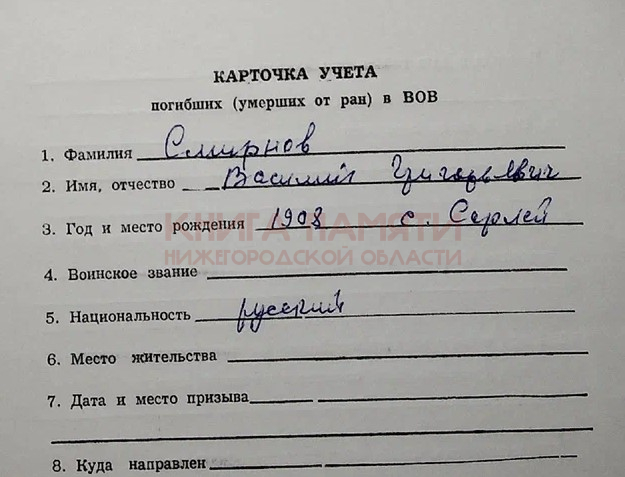 КАРТОЧКА УЧЕТА
погибших (умерших от ран) в ВОВ
1. Фамилия Смирнов
2. Имя, отчество Василий Григорьевич
3. Год и место рождения 1908 с. Сарлей
КНИГА ПАМЯТИ
НИЖЕГОРОДСКОЙ ОБЛАСТИ
4. Воинское звание
5. Национальность русский
6. Место жительства
7. Дата и место призыва
8. Куда направлен